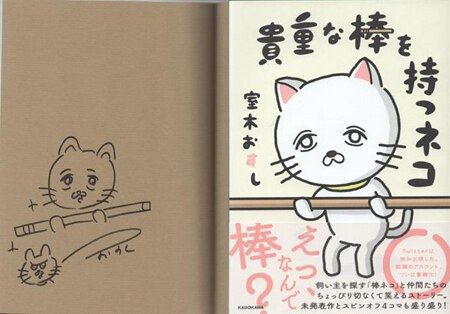 貴重な棒を
持つネコ
室木おすし
えっ、なんで
棒?
Twitterに
突如出現した、
話題のアカウント、
ついに書籍化!
飼い主を探す「棒ネコ」と仲間たちの
ちょっぴり切なくて笑えるストーリー。
未発表作とスピンオフ4コマも盛り盛り!
KADOKAWA
おすし